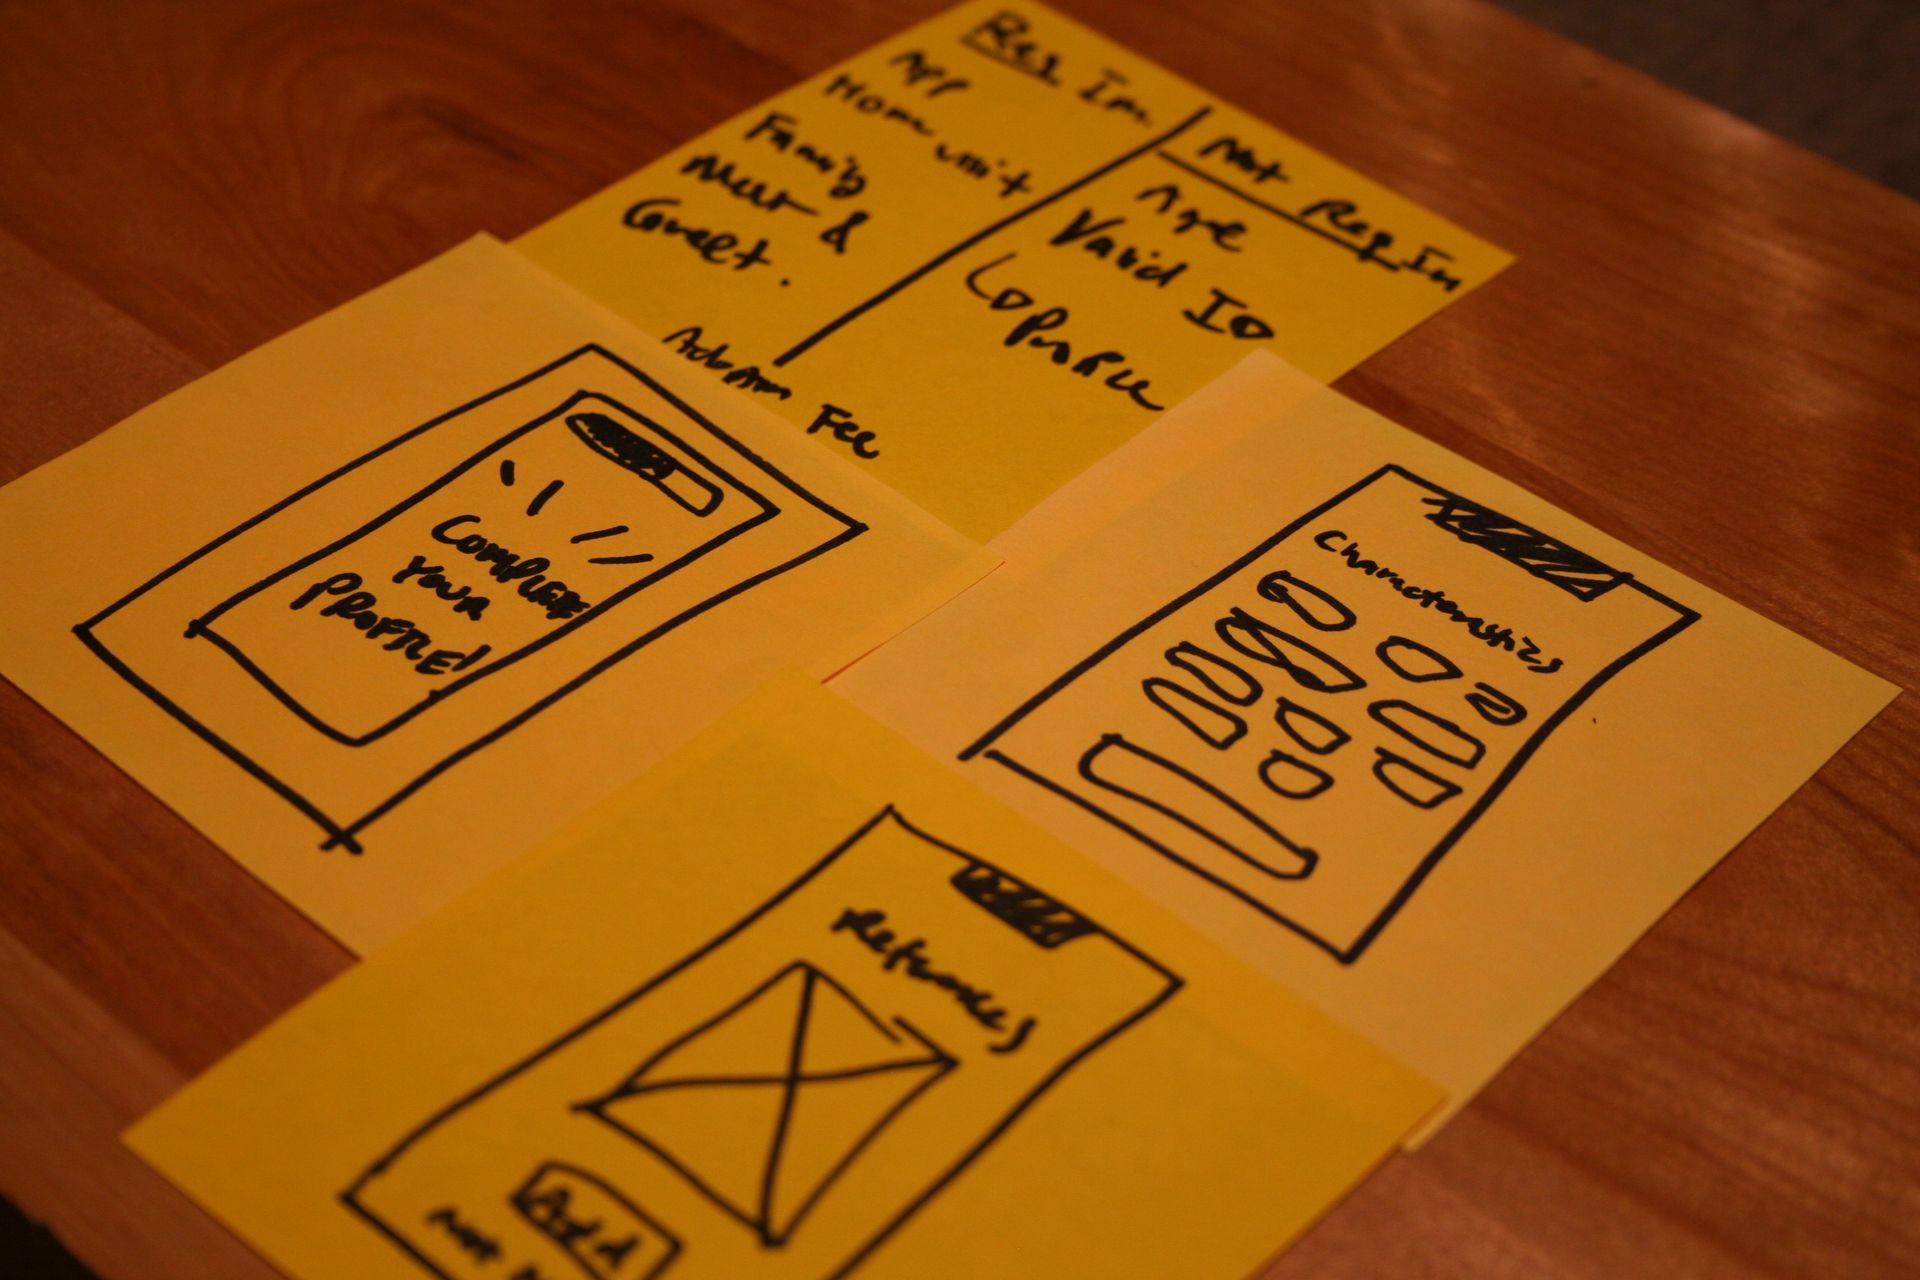 Req Im
App
Home visit
Family
Meet &
Greet.
Adoption Fee
Not Req Im
Age
Valid ID
COMPLETE
YOUR
PROFILE!
Characteristics
References
Add
Not